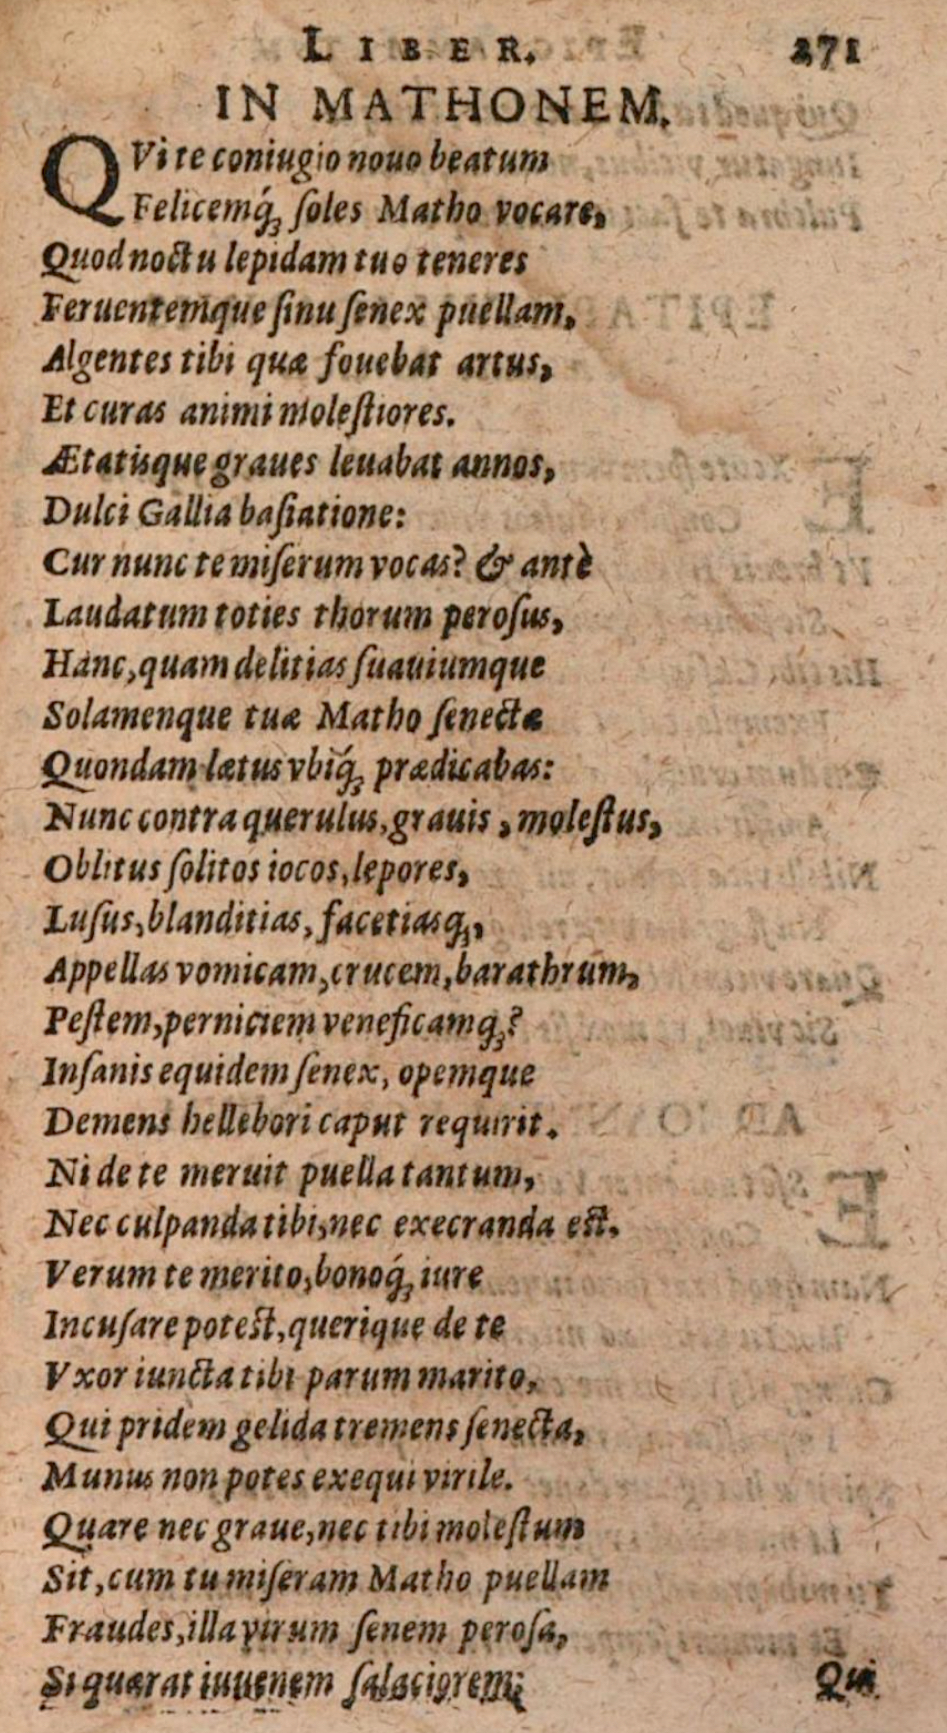 LIBER. 271
IN MATHONEM.
QVi te coniugio nouo beatum
Felicemq́ꝫ ſoles Matho vocare,
Quod noctu lepidam tuo teneres
Feruentemque ſinu ſenex puellam,
Algentes tibi quæ fouebat artus,
Et curas animi moleſtiores.
Ætatisque graues leuabat annos,
Dulci Gallia baſiatione:
Cur nunc te miſerum vocas? & antè
Laudatum toties thorum peroſus,
Hanc, quam delitias ſuauiumque
Solamenque tuæ Matho ſenectæ
Quondam lætus vbiq́ꝫ prædicabas:
Nunc contra querulus, grauis, moleſtus,
Oblitus ſolitos iocos, lepores,
Luſus, blanditias, facetiasqꝫ,
Appellas vomicam, crucem, barathrum,
Peſtem, perniciem veneficamqꝫ?
Inſanis equidem ſenex, opemque
Demens hellebori caput requirit.
Ni de te meruit puella tantum,
Nec culpanda tibi, nec execranda eſt.
Verum te merito, bonoq́ꝫ iure
Incuſare poteſt, querique de te
Vxor iuncta tibi parum marito,
Qui pridem gelida tremens ſenecta,
Munus non potes exequi virile.
Quare nec graue, nec tibi moleſtum
Sit, cum tu miſeram Matho puellam
Fraudes, illa virum ſenem peroſa,
Si quærat iuuenem ſalaciorem;
Qui